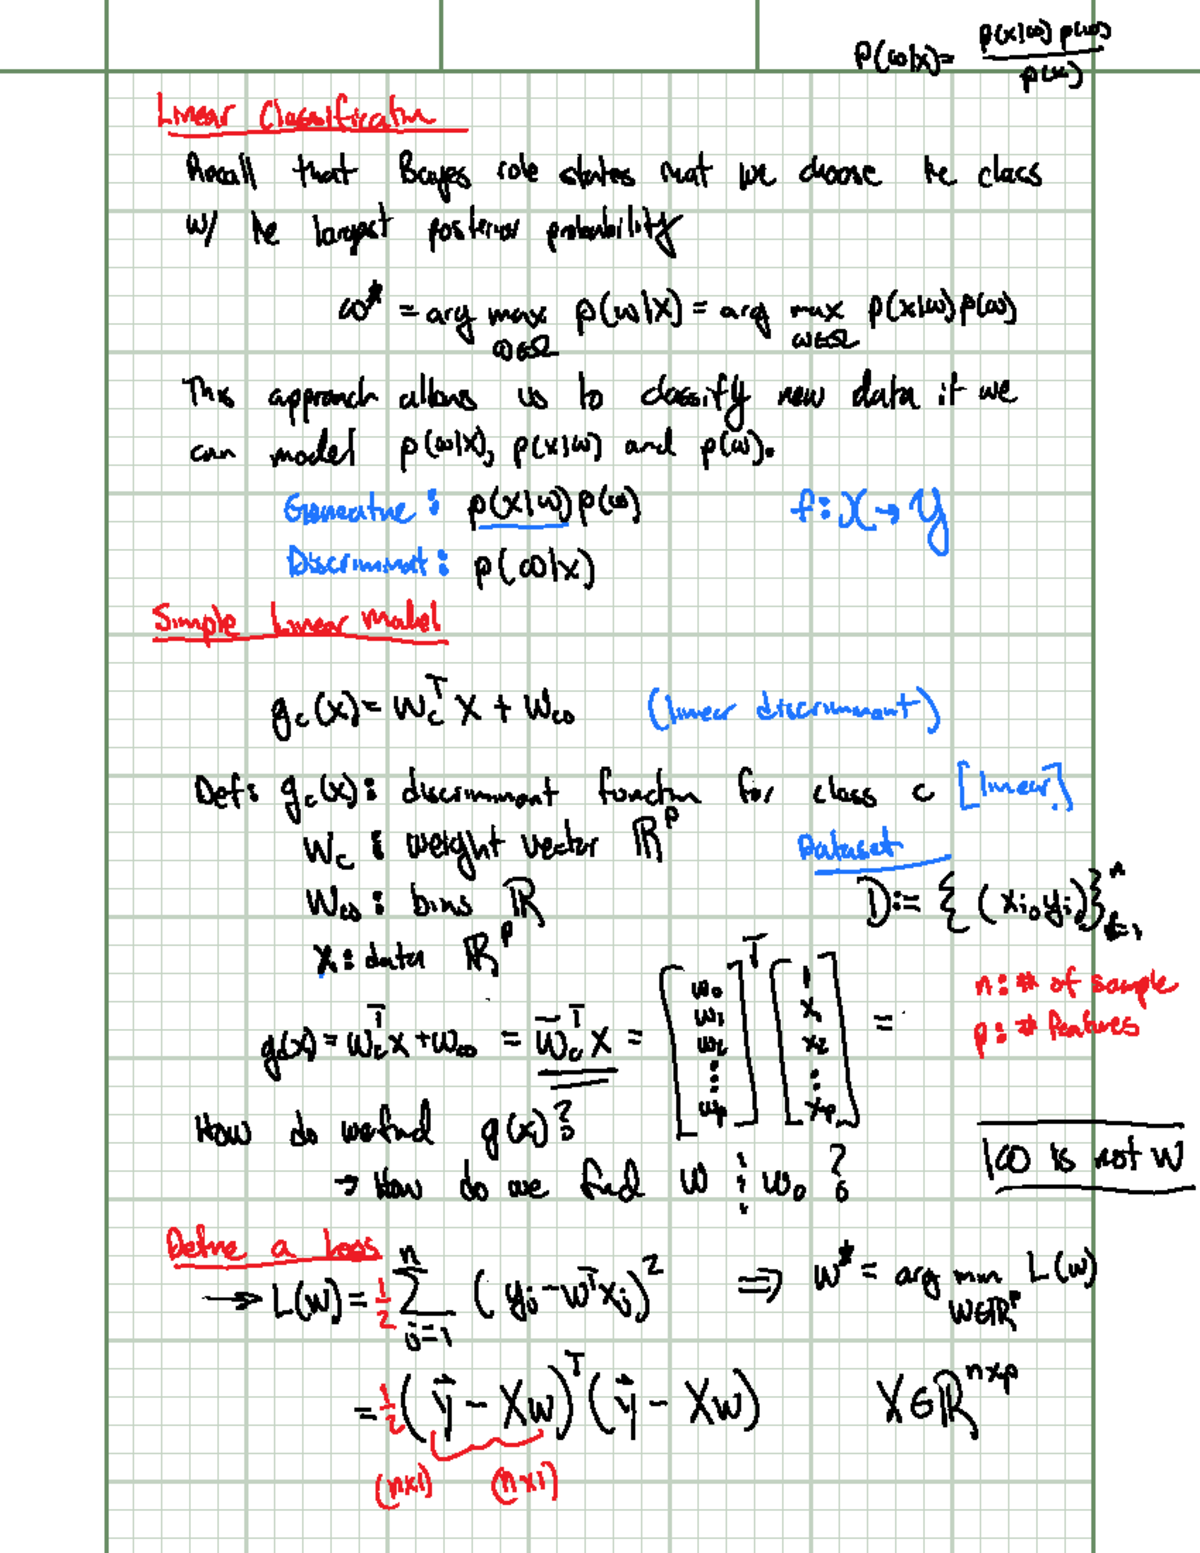 P(ω|x) = p(x|ω) p(ω) / p(x)
Linear Classification
Recall that Bayes rule states that we choose the class
w/ the largest posterior probability
ω* = arg max_{ω∈Ω} p(ω|x) = arg max_{ω∈Ω} p(x|ω)p(ω)
This approach allows us to classify new data if we
can model p(ω|x), p(x|ω) and p(ω).
Generative: p(x|ω)p(ω) f: X → Y
Discriminant: p(ω|x)
Simple Linear Model
g_c(x) = w_c^T x + w_c0 (linear discriminant)
Def: g_c(x): discriminant function for class c [linear]
w_c: weight vector ℝ^p
Dataset
w_c0: bias ℝ
D := { (x_i, y_i) }_{i=1}^n
x: data ℝ^p
n: # of sample
p: # features
g_c(x) = w_c^T x + w_c0 = w̄_c^T x = [w_0 w_1 w_2 ⋮ w_p]^T [1 x_1 x_2 ⋮ x_p] =
How do we find g(x)?
→ How do we find w ; w_0 ?
ω is not w
Define a Loss
→ L(w) = 1/2 Σ_{i=1}^n (y_i - w^T x_i)^2 ⟹ w* = arg min_{w∈ℝ^p} L(w)
= 1/2 (y⃗ - Xw)^T (y⃗ - Xw) X∈ℝ^{n×p}
(n×1) (n×1)